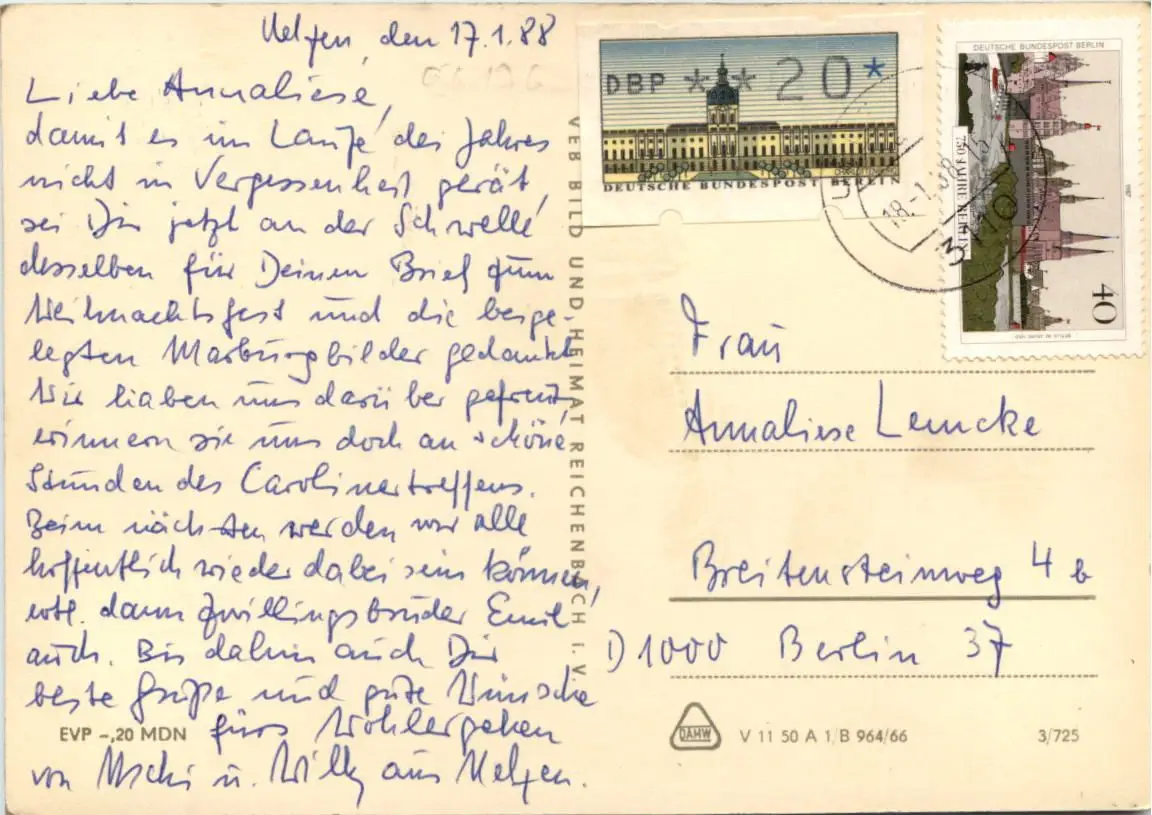 Uelzen, den 17.1.88
Liebe Annaliese,
damit es im Laufe des Jahres
nicht in Vergessenheit gerät,
sei Dir jetzt an der Schwelle
desselben für Deinen Brief zum
Weihnachtsfest und die beige-
legten Marburgbilder gedankt.
Wir haben uns darüber gefreut,
erinnern sie uns doch an schöne
Stunden des Carolinertreffens.
Beim nächsten werden wir alle
hoffentlich wieder dabei sein können,
evtl. dann Zwillingsbruder Emil
auch. Bis dahin auch Dir
beste Grüße und gute Wünsche
fürs Wohlergehen
von Uschi u. Willy aus Uelzen.
EVP -,20 MDN
VEB BILD UND HEIMAT REICHENBACH I. V.
DBP ** 20*
DEUTSCHE BUNDESPOST BERLIN
DEUTSCHE BUNDESPOST BERLIN
750 JAHRE BERLIN
1987
40
18.-1.88-15
3110
Frau
Annaliese Lemcke
Breitensteinweg 4 b
D 1000 Berlin 37
DAMW
V 11 50 A 1/B 964/66
3/725